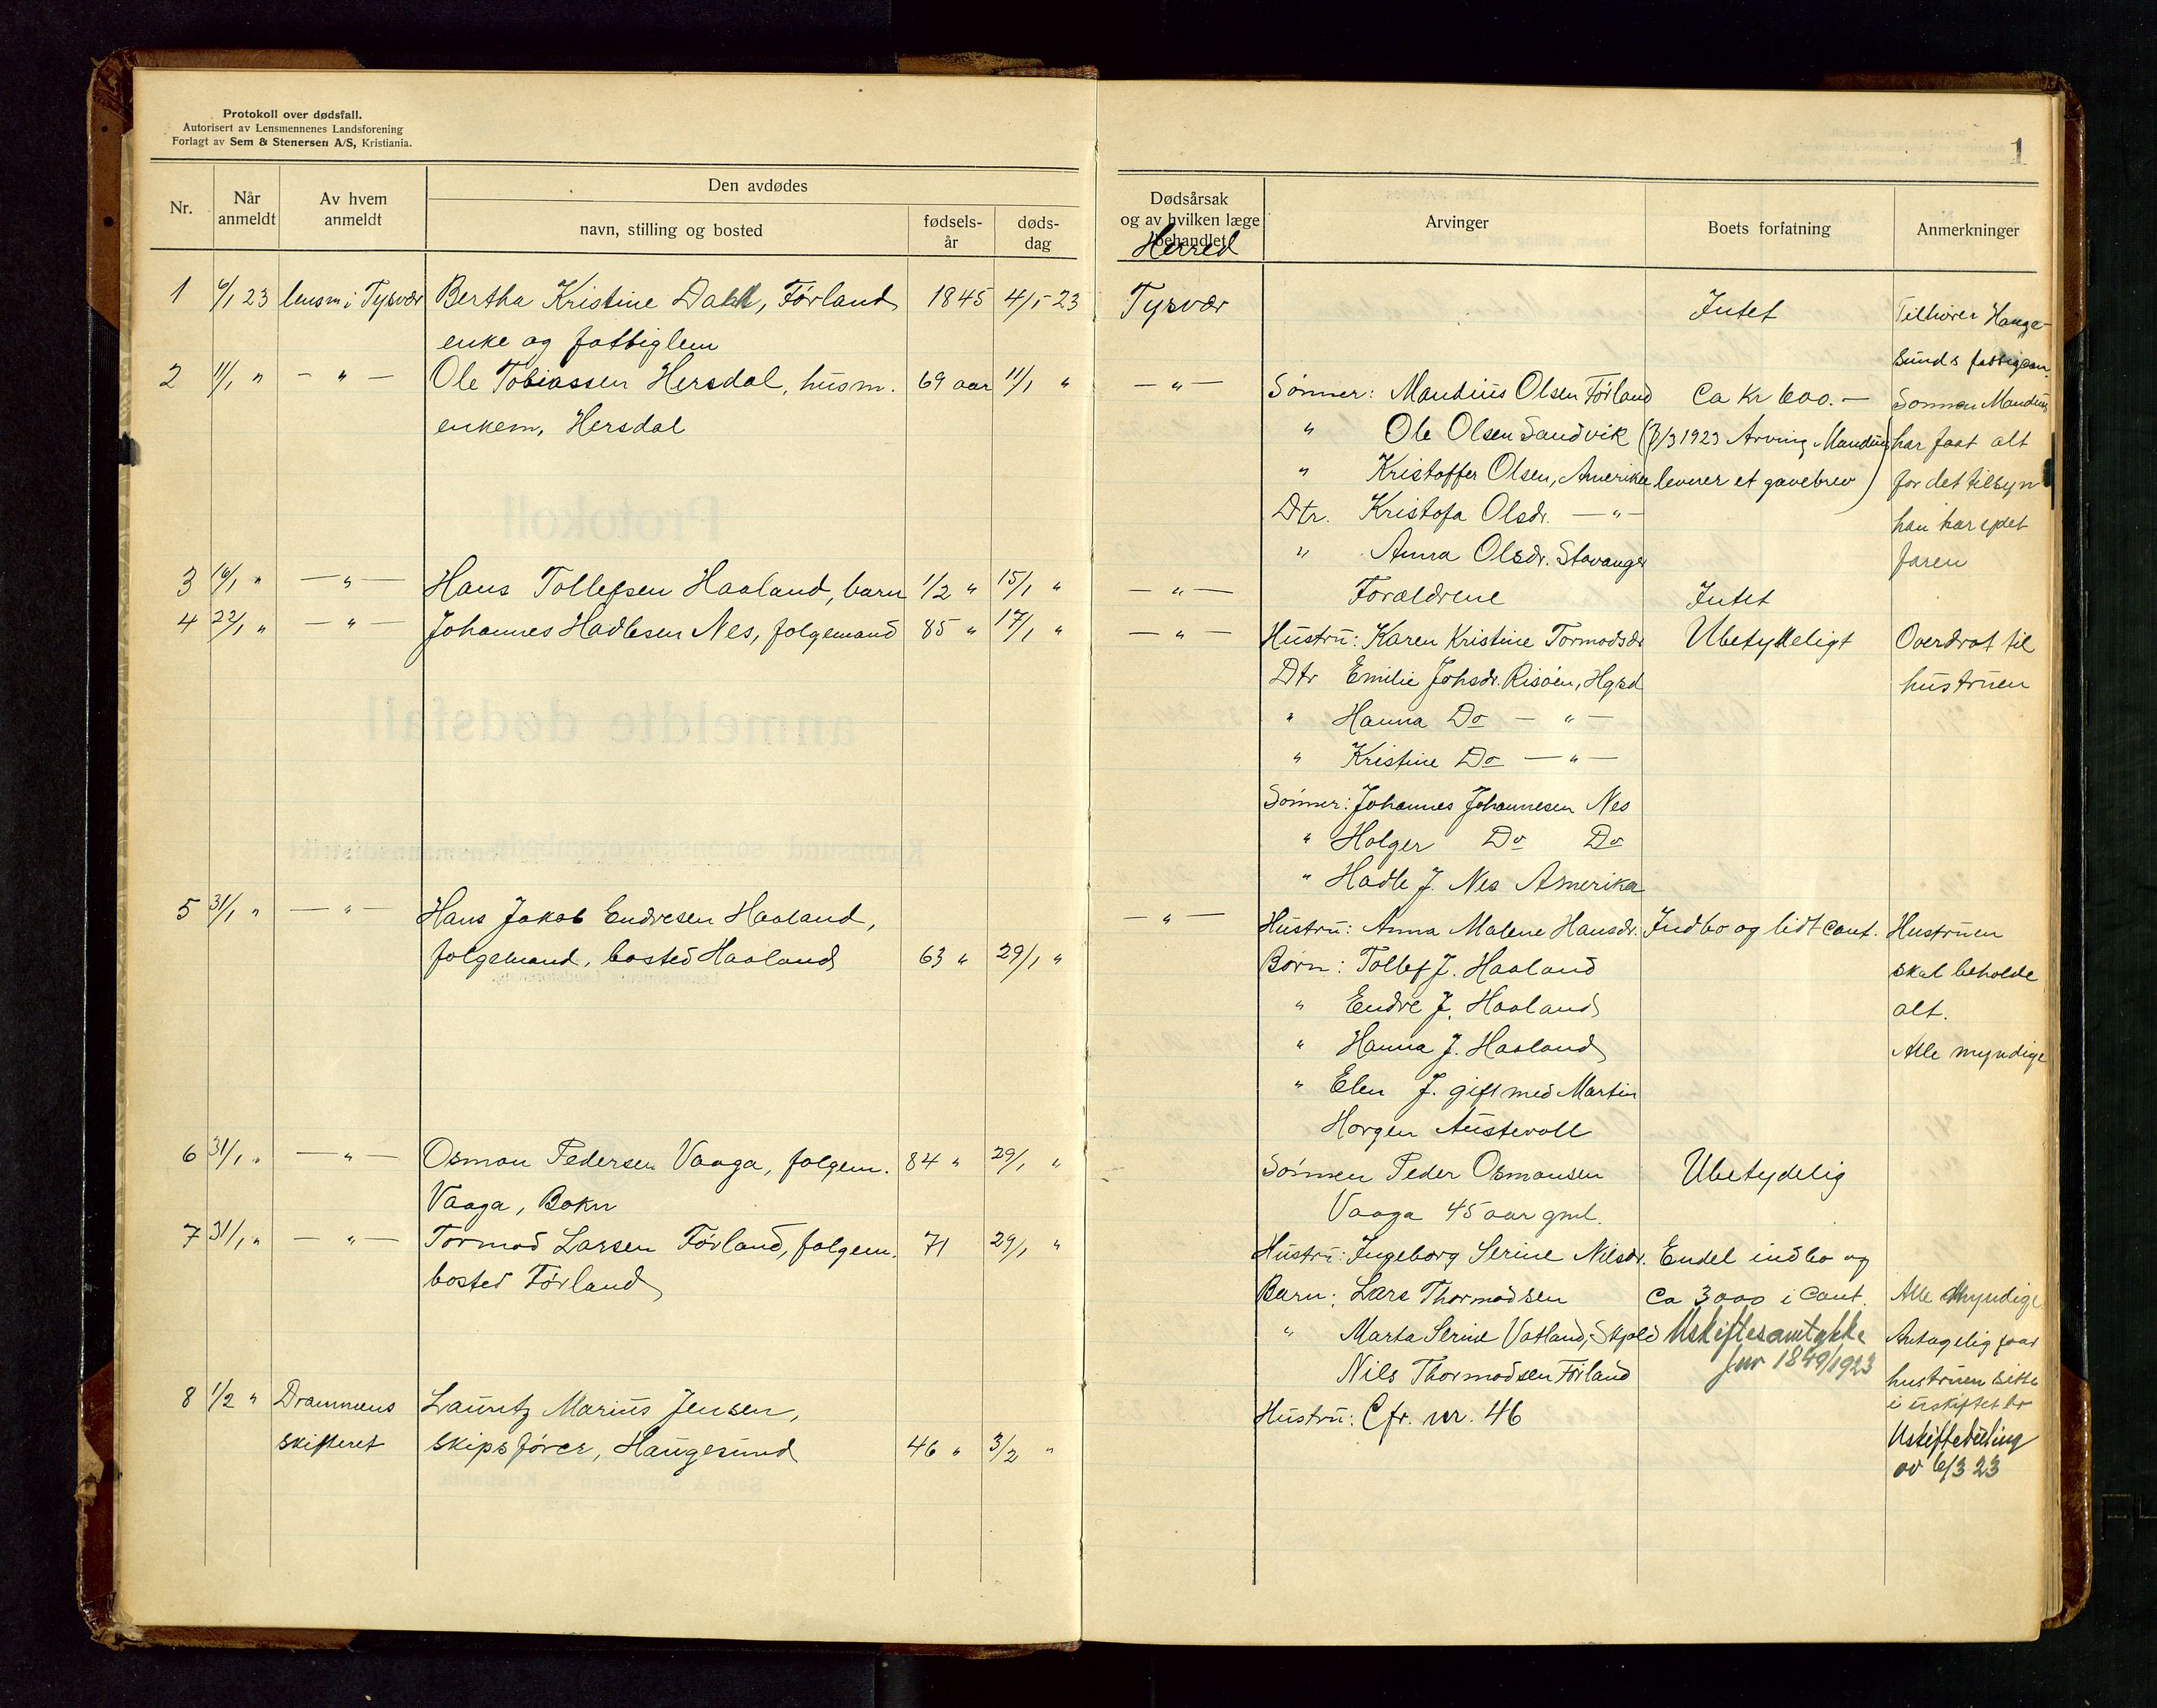 Protokoll over dødsfall.
Autorisert av Lensmennenes Landsforening
Forlagt av Sem & Stenersen A/S, Kristiania.
1
Nr.
Når anmeldt
Av hvem anmeldt
Den avdødes
navn, stilling og bosted
fødsels-år
døds-dag
Dødsårsak og av hvilken læge behandlet
Herred
Arvinger
Boets forfatning
Anmerkninger
1 6/1 23 lensm i Tysvær Bertha Kristine Dahl, Førland 1845 4/1-23 Tysvær Intet Tilhører Hauge-
enke og fattiglem
sunds
2 11/1 " — " — Ole Tobiassen Hersdal, husm. 69 aar 11/1 " — " — Sønner: Mandius Olsen Førland Ca Kr 600.— Sønnen Mandius
enkem, Hersdal
" Ole Olsen Sandvik (7/3 1923 Arving Mandius har faat alt
" Kristoffer Olsen, Amerika leverer et gavebrev) for det tilsyn
Dtr. Kristofa Olsdr. — " — han har ydet
" Anna Olsdr. Stavanger faren
3 16/1 " — " — Hans Tollefsen Haaland, barn 1/2 " 15/1 " — " — Forældrene Intet
4 22/1 " — " — Johannes Hadlesen Nes, folgemand 85 " 17/1 " — " — Hustru: Karen Kristine Tormodsdr Ubetydeligt Overdrat til
Dtr Emilie Johsdr. Risøen, Hgsd hustruen
" Hanna Do — " —
" Kristine Do — " —
Sønner: Johannes Johannesen Nes
" Holger Do Do
" Hadle J. Nes Amerika
5 31/1 " — " — Hans Jakob Endresen Haaland, — " — Hustru: Anna Malene Hansdr. Indbo og lidt cont. Hustruen
folgemand, bosted Haaland 63 " 29/1 " Børn: Tollef J. Haaland skal beholde
" Endre J. Haaland alt.
" Hanna J. Haaland Alle myndige
" Elen J. gift med Martin
Horgen Austevoll
6 31/1 " — " — Osmon Pedersen Vaaga, folgem. 84 " 29/1 " Sønnen Peder Osmonsen Ubetydelig
Vaaga, Bokn
Vaaga 45 aar gml.
7 31/1 " — " — Tormod Larsen Førland, folgem. 71 29/1 " Hustru: Ingeborg Serine Nilsdr. Endel indbo og
bosted Førland
Barn: Lars Thormodsen Ca 3000 i cont. Alle myndige
" Marta Serine Vatland, Skjold Uskiftesamtykke Antagelig faar
Nils Thormodsen Førland jnr 1849/1923 hustruen sitte
i uskiftet bo
8 1/2 " Drammens Lauritz Marius Jensen, Hustru: Cfr. nr. 46
Uskiftebevilling
skifteret skipsfører, Haugesund 46 " 3/2 "
av 6/3 23